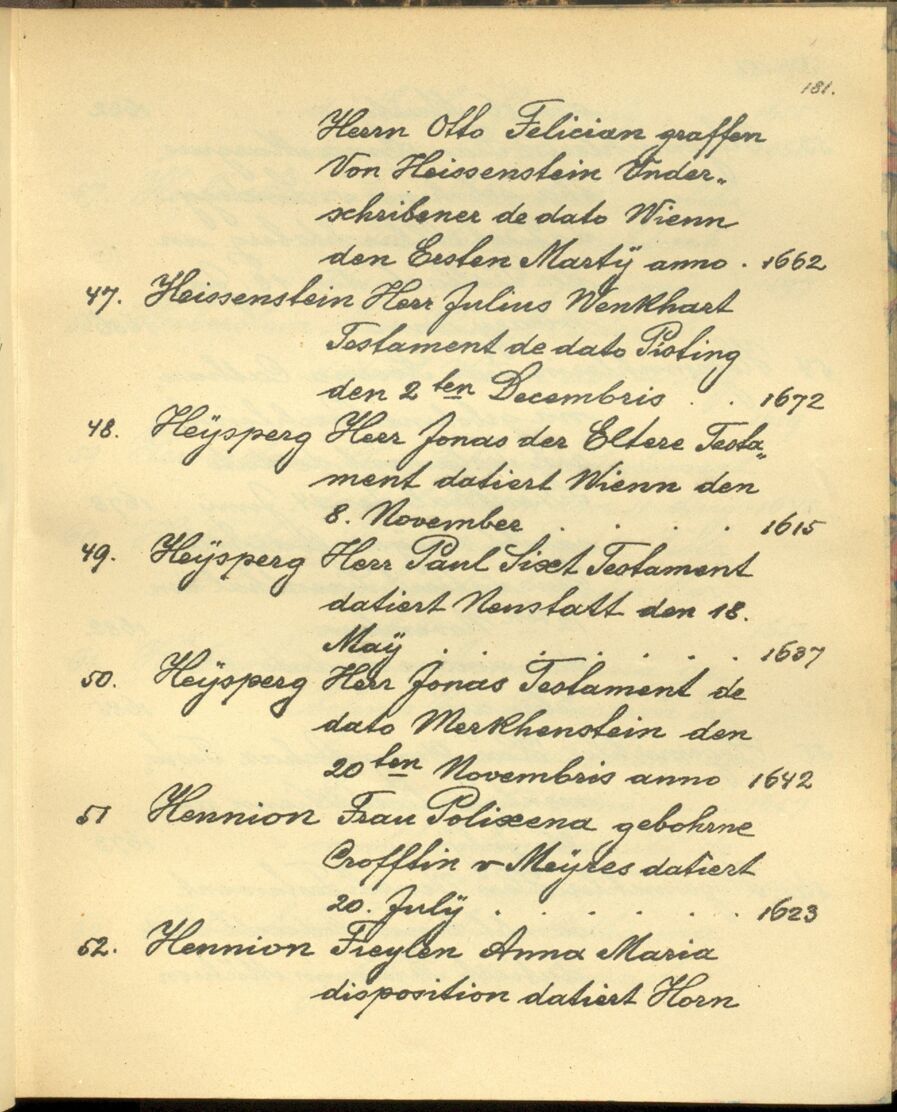 181.
Herrn Otto Felician graffen
Von Heissenstein Vnder„
schribener de dato Wienn
den Ersten Martÿ anno . 1662
47. Heissenstein Herr Julius Wenkhart
Testament de dato Pisting
den 2ten Decembris . . 1672
48. Heÿsperg Herr Jonas der Eltere Testa„
ment datiert Wienn den
8. November . . . . 1615
49. Heÿsperg Herr Paul Sixt Testament
datiert Neustatt den 18.
Maÿ . . . . . . . 1637
50. Heÿsperg Herr Jonas Testament de
dato Merkhenstein den
20ten Novembris anno 1642
51 Hennion Frau Polixena gebohrne
Crofftin v Meÿres datiert
20. Julÿ . . . . . . 1623
52. Hennion Freylen Anna Maria
disposition datiert Horn